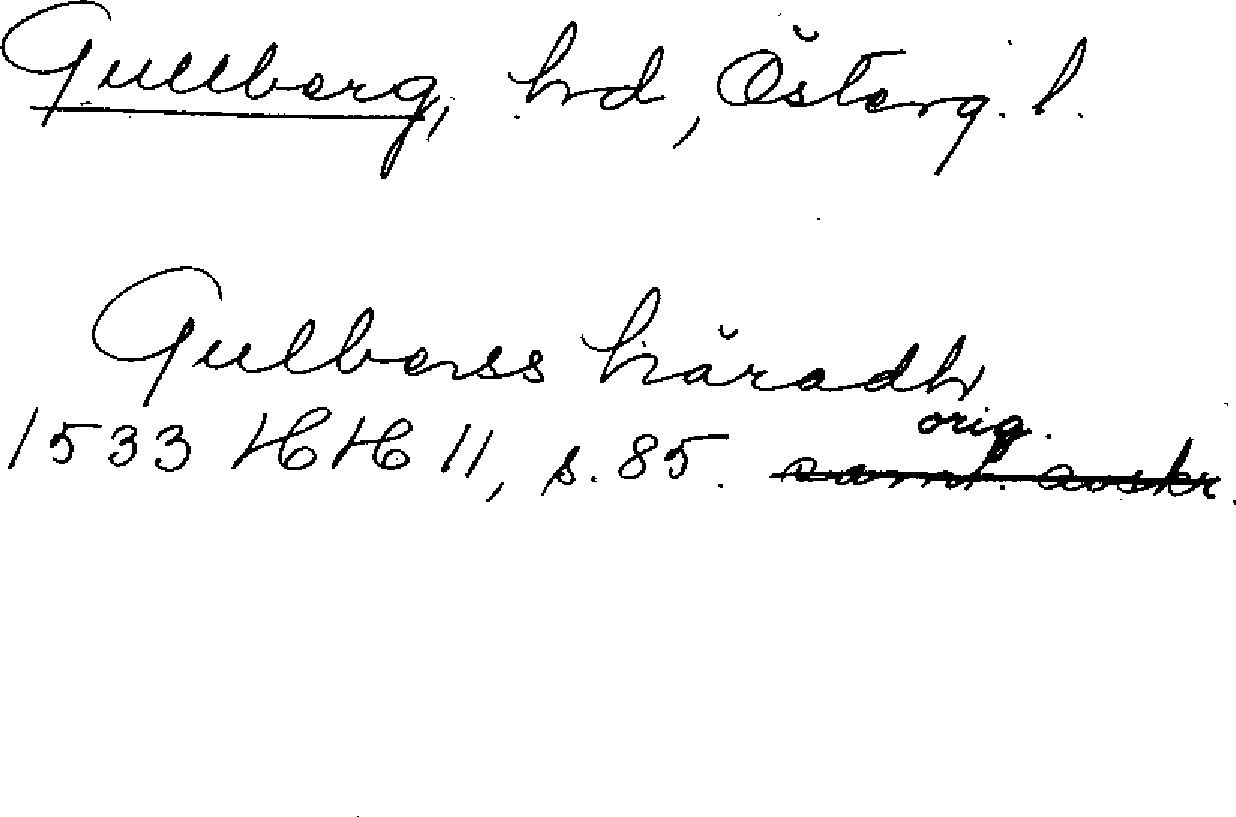 Gullberg, hd, Österg. l.
Gulberss häradh
orig.
1533 HH 11, s. 85. samt. avskr.